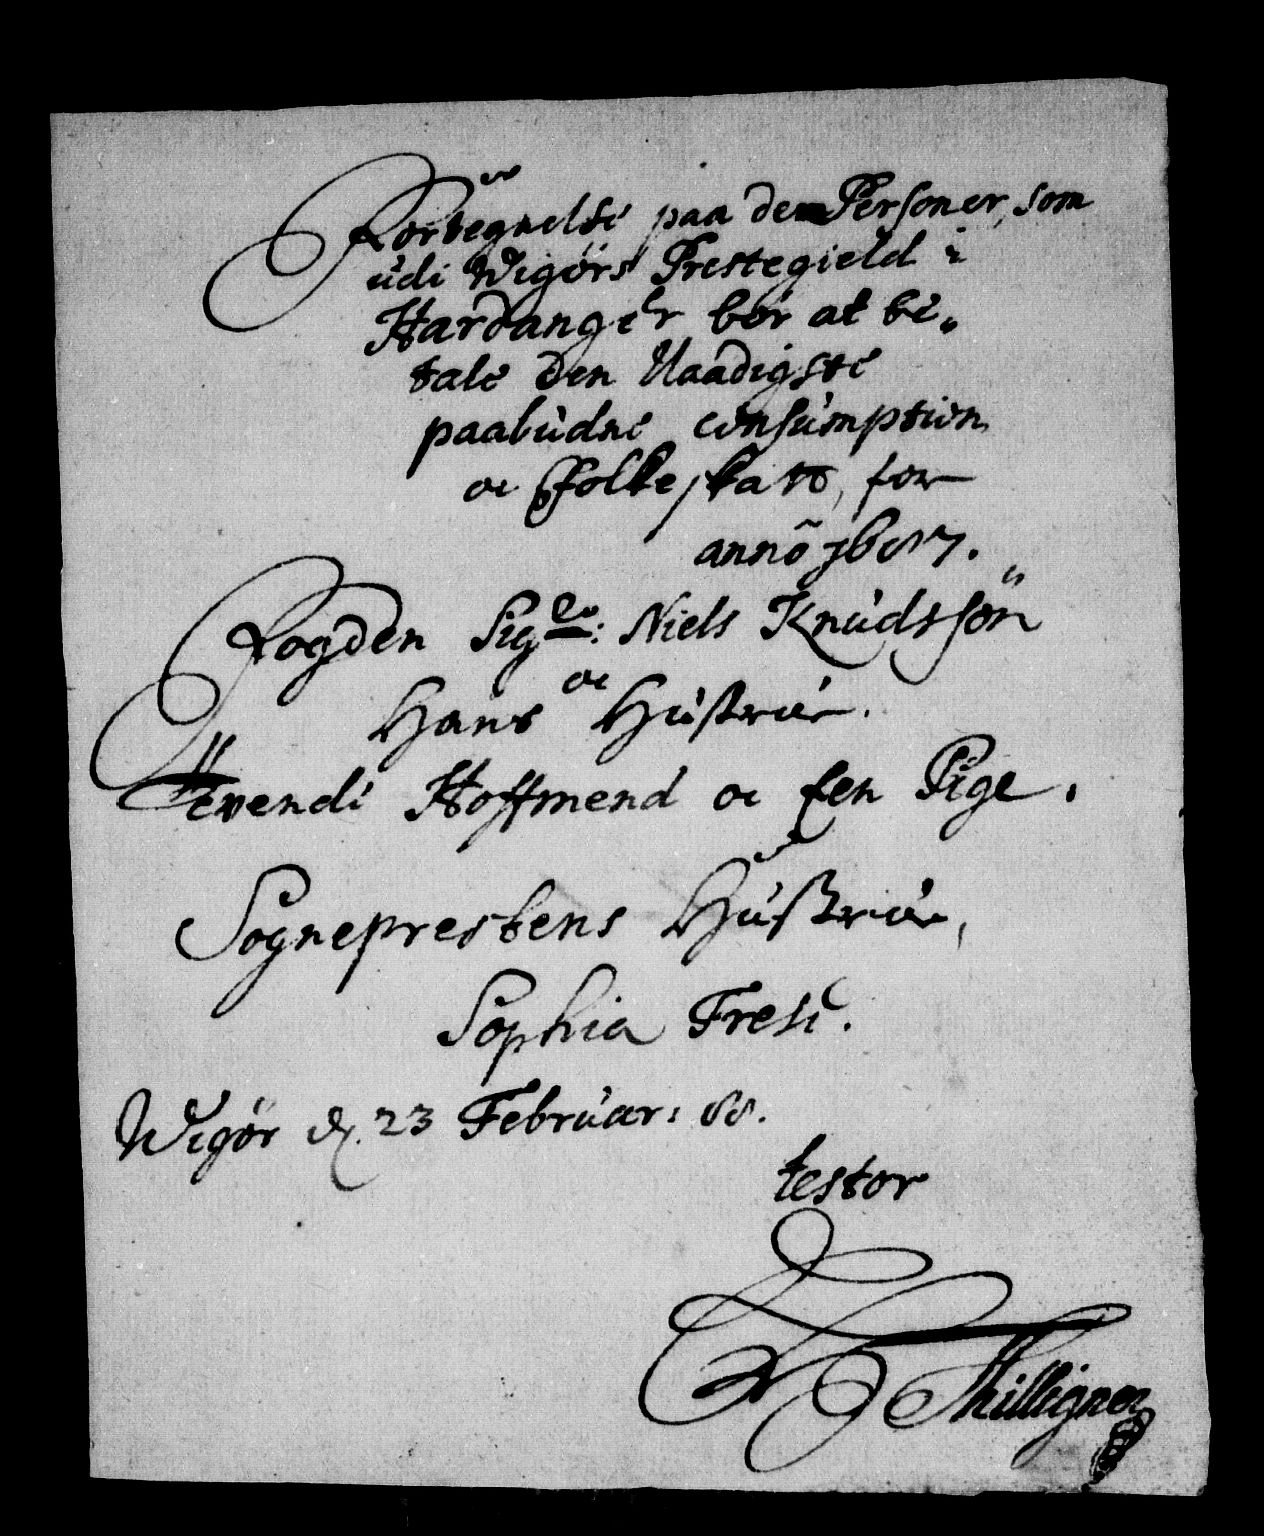 Fortegnelse paa dem Personer, som
udi Wigörs Prestegield i
Hardanger bör at be„
tale den Naadigste
paabudne consumption
oc Folkeskatt, for
anno 1687.
Fogden Sigr: Niels Knudssön
oc
Hans Hustrue.
Tvende Hoffmend oc Een Pige,
Sogneprestens Hustrue,
Sophia Frese.
Wigör d. 23 Februar: 88.
testor